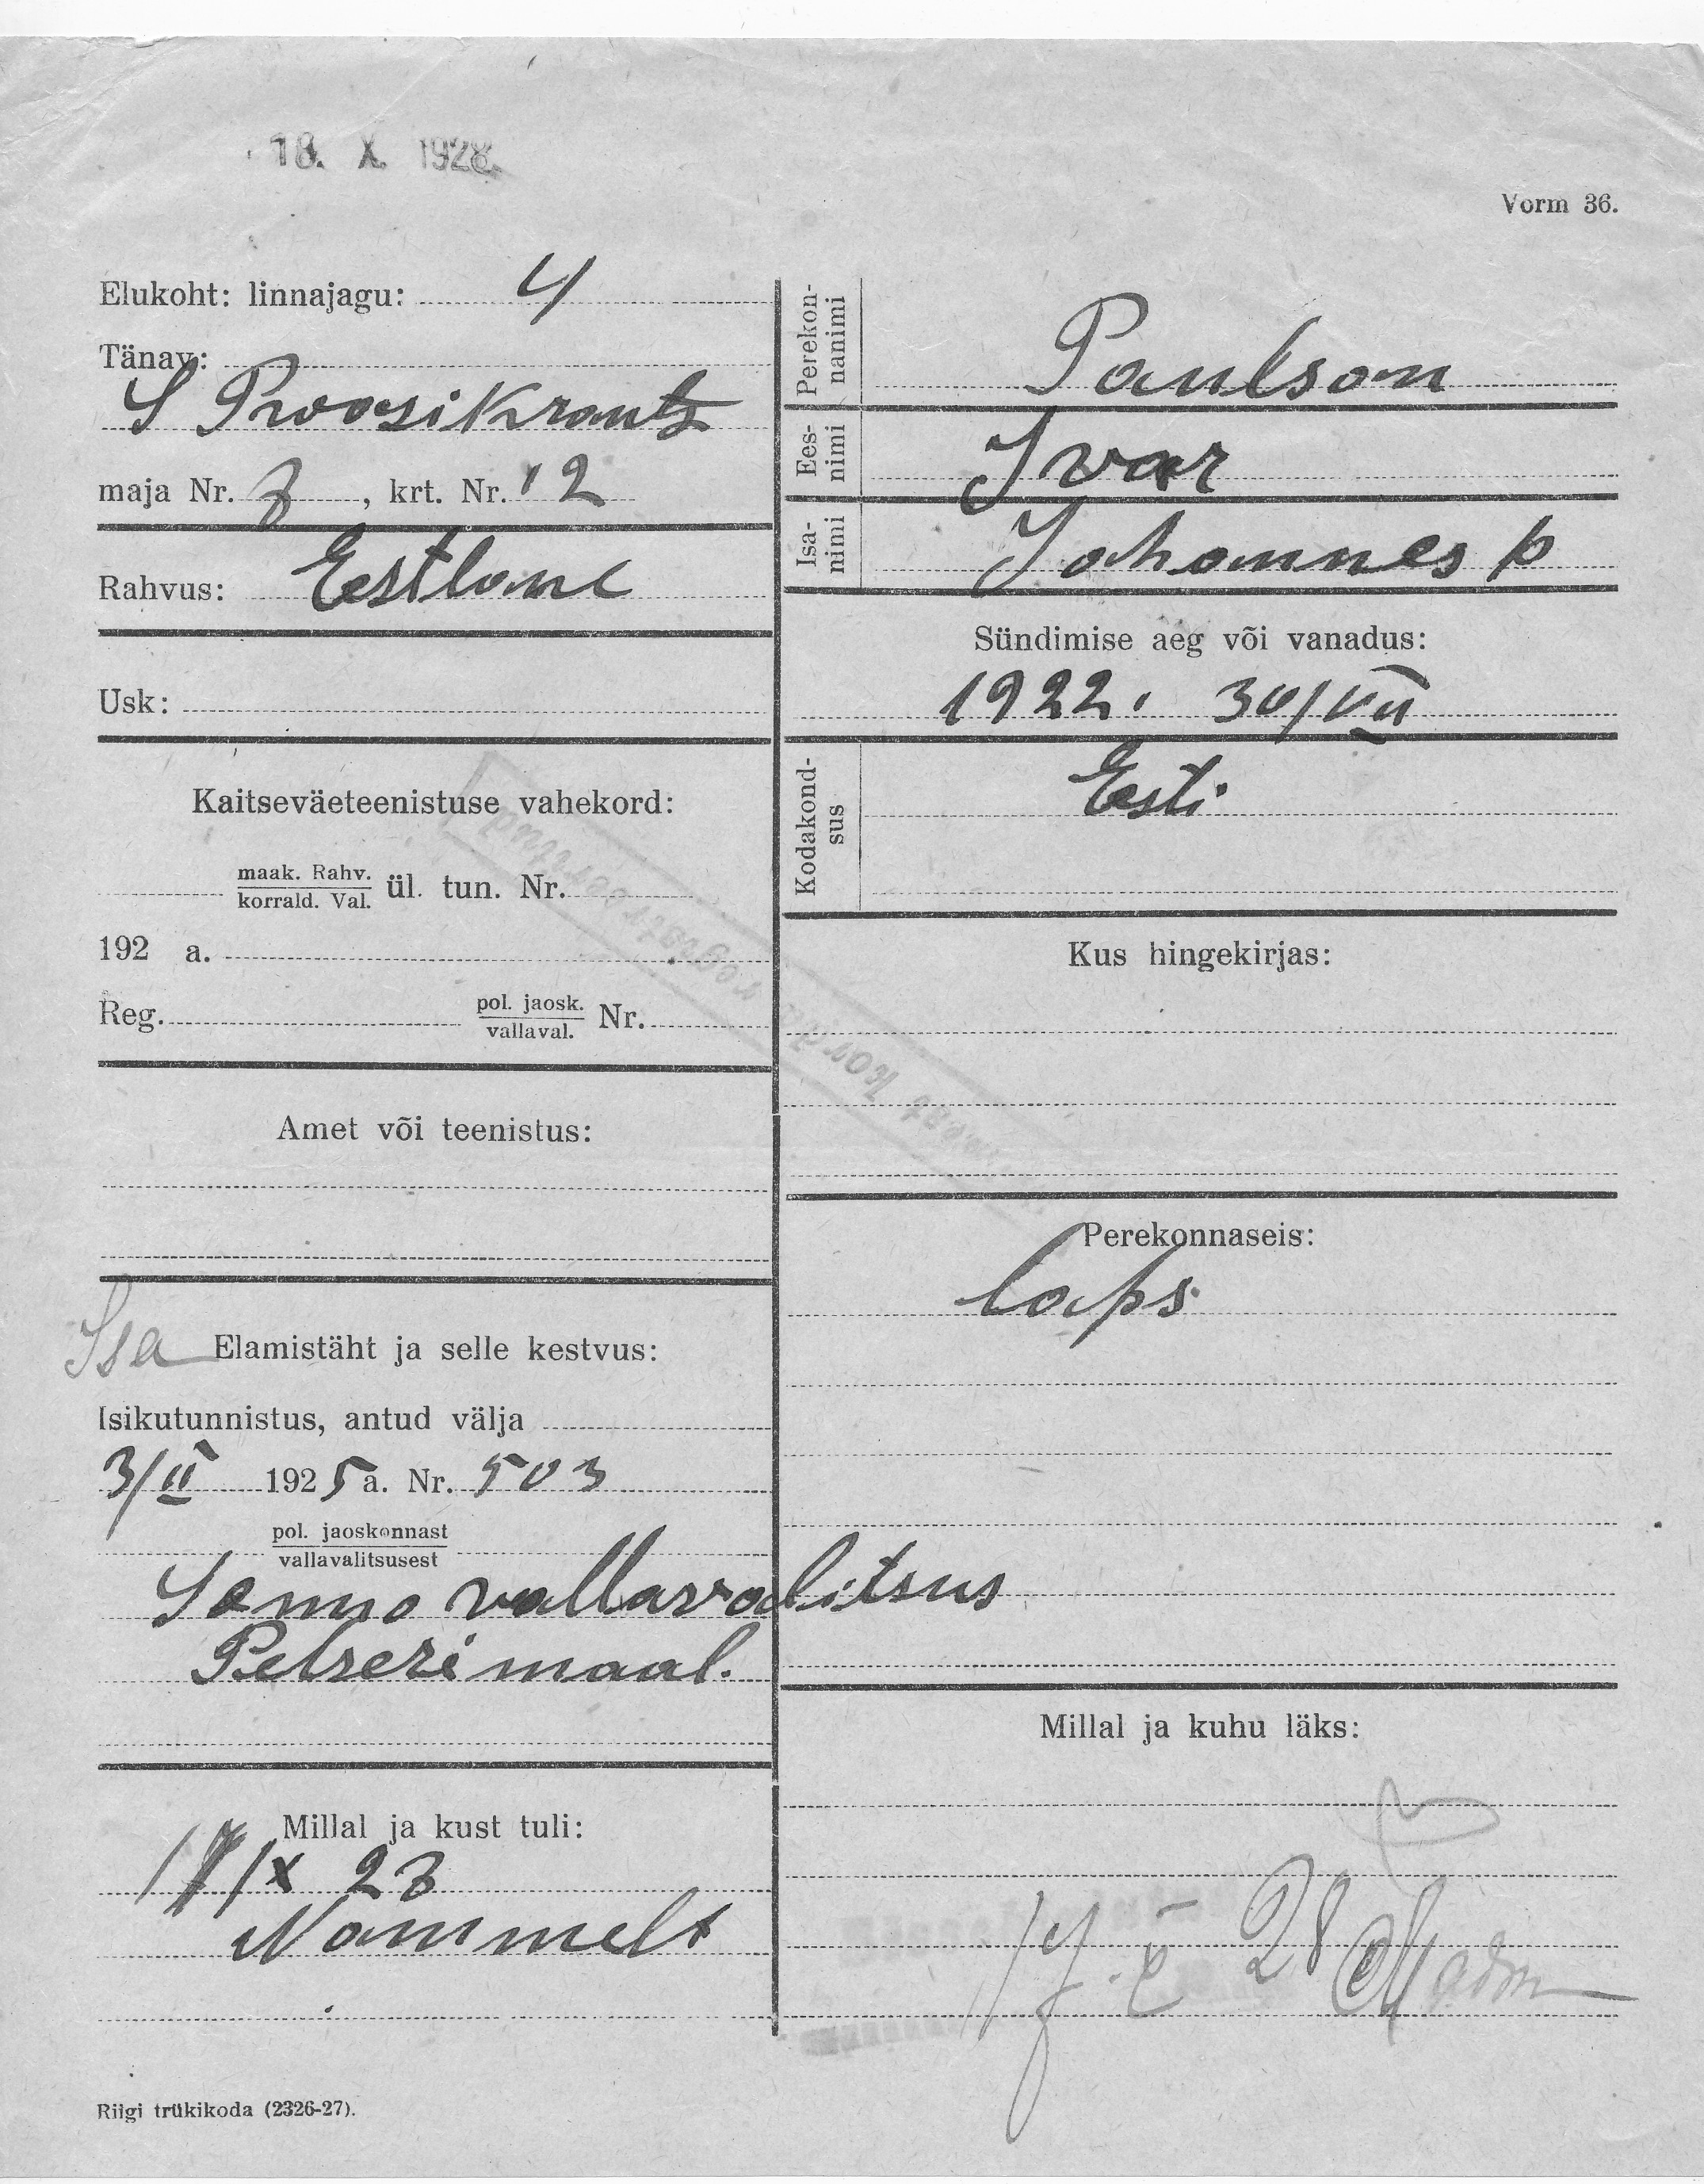 18. X. 1928.
Vorm 36.
Elukoht: linnajagu: 4
Tänav:
S Roosikrants
maja Nr. 8, krt. Nr. 12
Rahvus: Eestlane
Usk:
Kaitseväeteenistuse vahekord:
maak. Rahv.
korrald. Val. ül. tun. Nr.
192 a.
Reg. pol. jaosk.
vallaval. Nr.
Amet või teenistus:
Isa Elamistäht ja selle kestvus:
Isikutunnistus, antud välja
3/II 1925 a. Nr. 503
pol. jaoskonnast
vallavalitsusest
vallavalitsus
Petseri maal.
Millal ja kust tuli:
17/X 28
Nõmmelt
Riigi trükikoda (2326-27).
Perekon-
nanimi
Paulson
Ees-
nimi
Ivar
Isa-
nimi
Johannes p
Sündimise aeg või vanadus:
1922. 30/VII
Kodakond-
sus
Eesti
Kus hingekirjas:
Perekonnaseis:
laps
Millal ja kuhu läks:
17. X 28